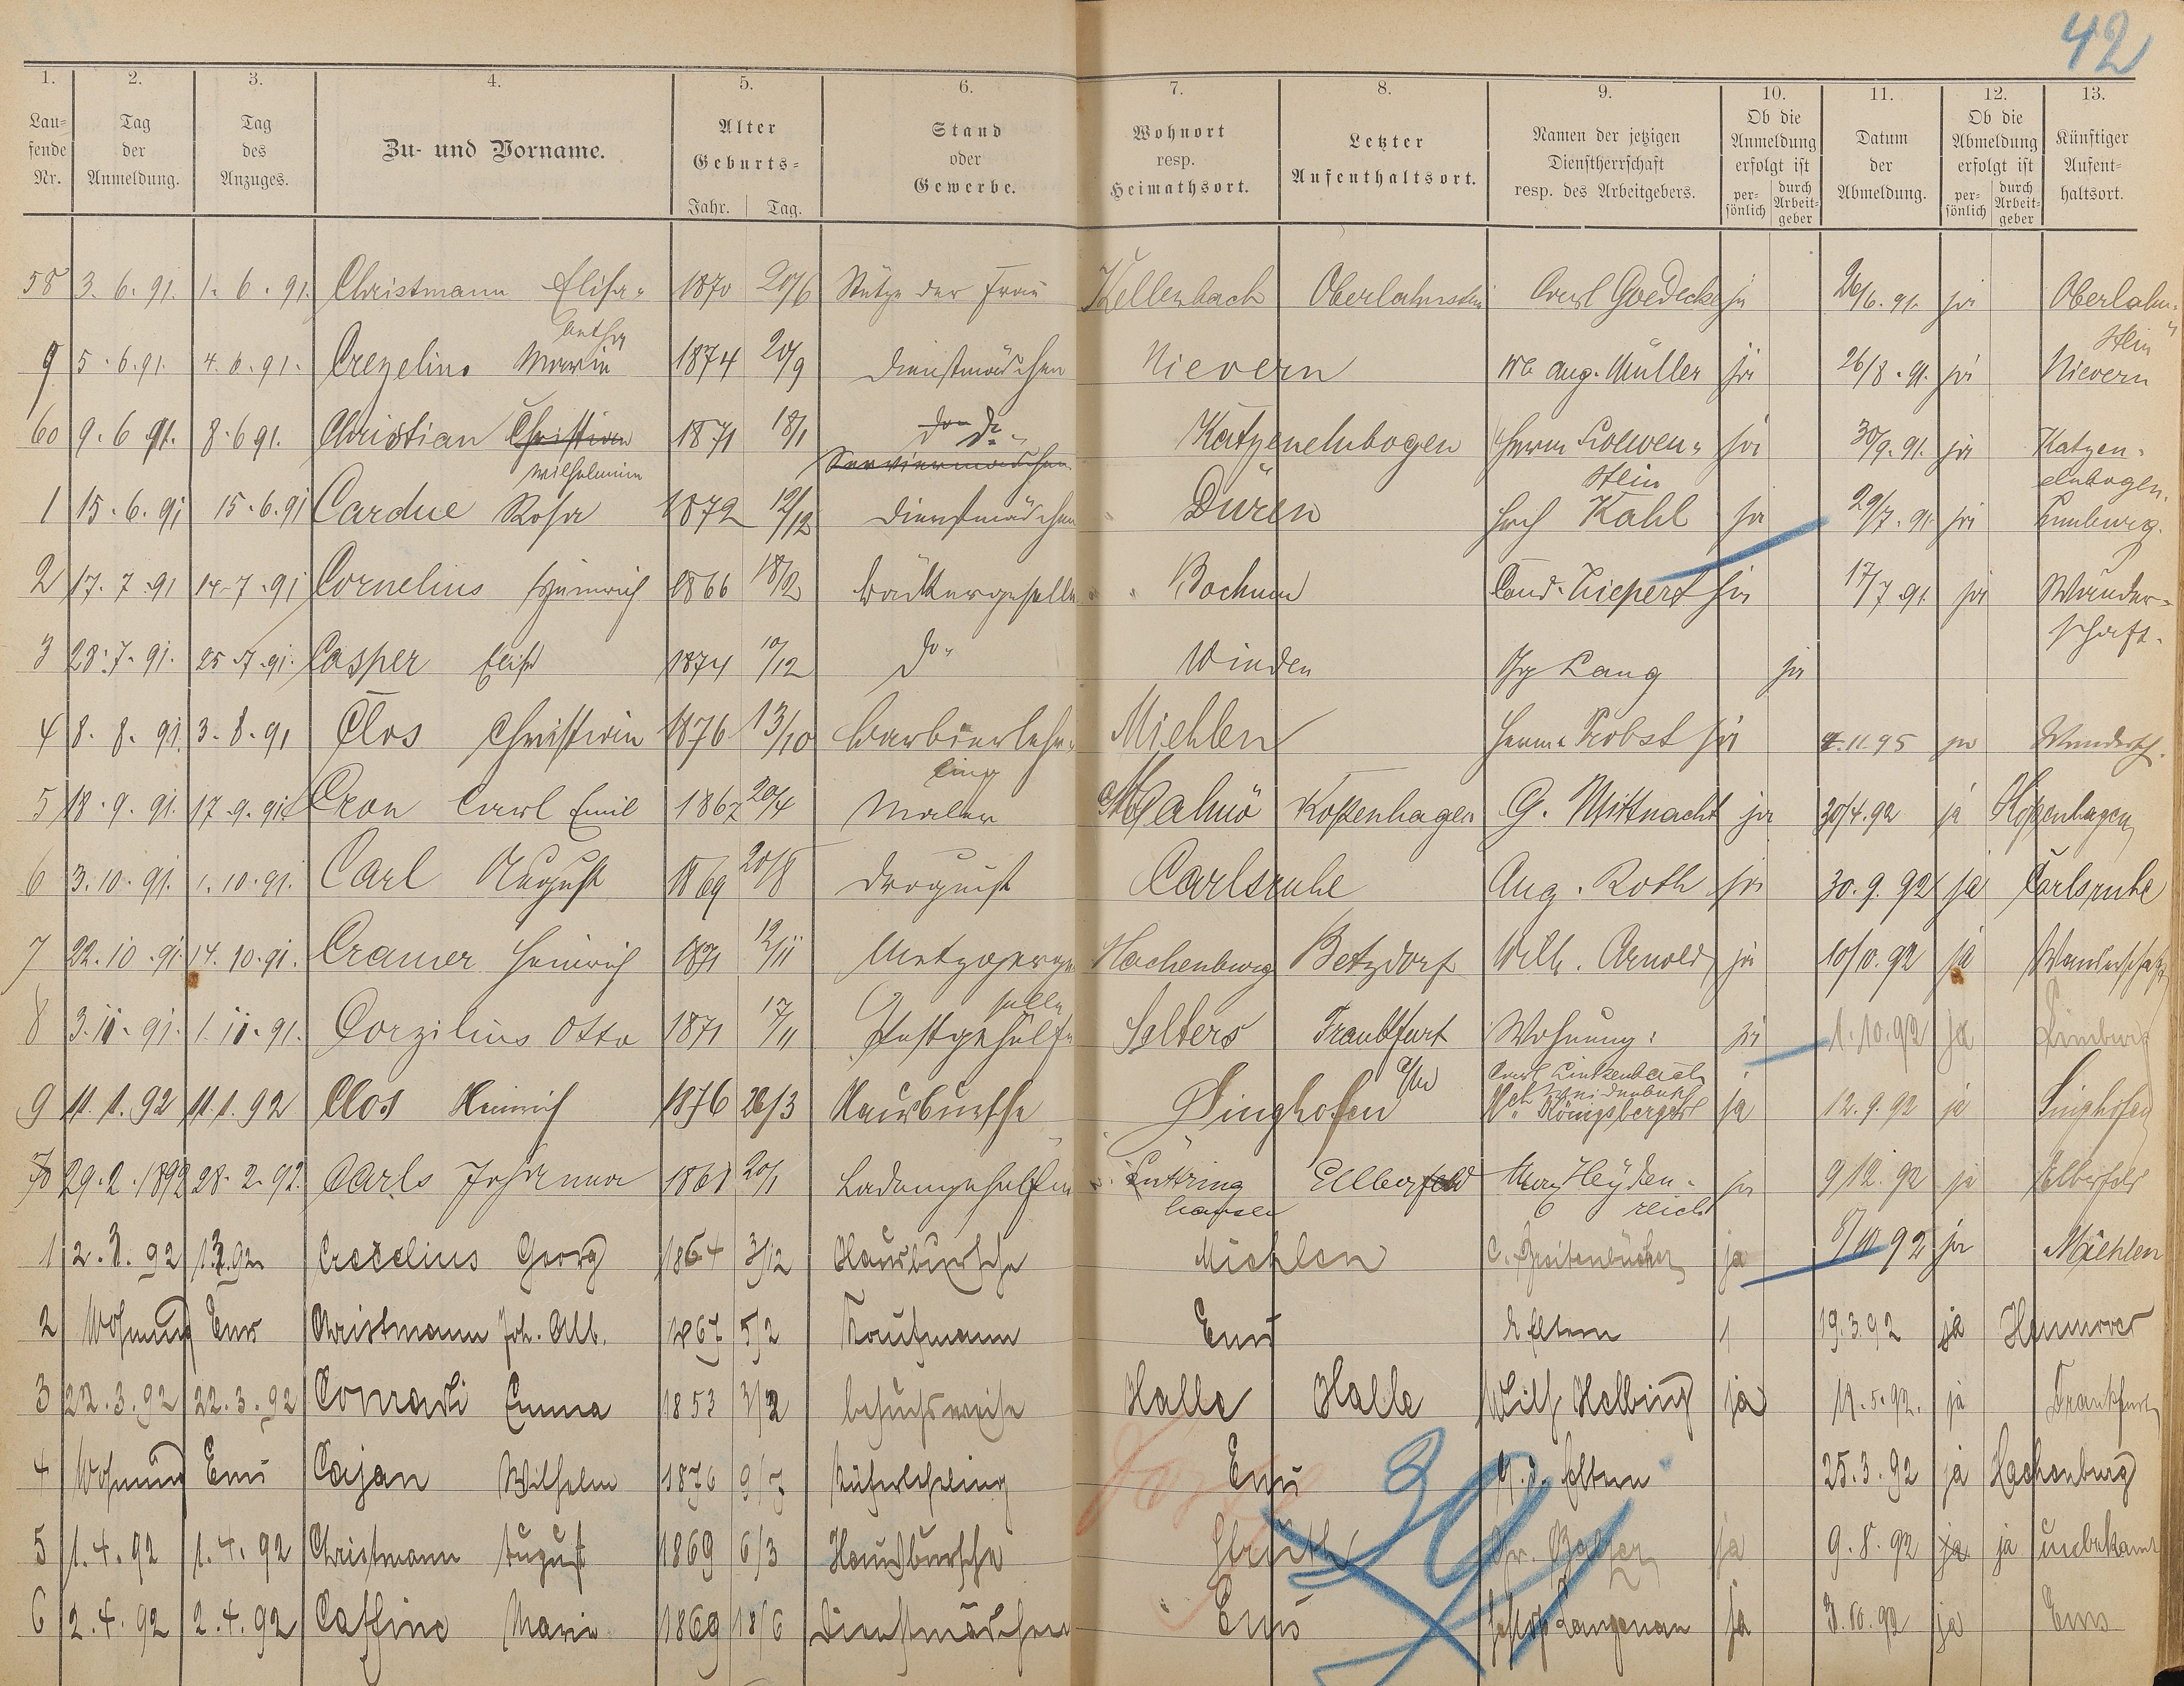 42
1. 2. 3. 4. 5. 6. 7. 8. 9. 10. 11. 12. 13.
Lau=fende Nr. Tag der Anmeldung. Tag des Anzuges. Zu- und Vorname. Alter Geburts= Jahr. Tag. Stand oder Gewerbe. Wohnort resp. Heimathsort. Letzter Aufenthaltsort. Namen der jetzigen Dienstherrschaft resp. des Arbeitgebers. Ob die Anmeldung erfolgt ist per-sönlich durch Arbeit-geber Datum der Abmeldung. Ob die Abmeldung erfolgt ist per-sönlich durch Arbeit-geber Künftiger Aufent-haltsort.
58 3. 6. 91. 1. 6. 91. Christmann Elisa= 1870 20/6 Stütze der Frau Kellenbach Oberlahnstein Carl Goedecke ja 26/6. 91. ja Oberlahn=
betha stein
9 5. 6. 91. 4. 6. 91. Crezelius Marie 1874 20/9 Dienstmädchen Nievern We Aug. Müller ja 26/8. 91. ja Nievern
60 9. 6 91. 8. 6 91. Christian Christian 1871 18/1 do do Katzenelnbogen Herm Loewen= ja 30/9. 91. ja Katzen=
Wilhelmine Serviermädchen stein elnbogen.
1 15. 6. 91 15. 6. 91 Cardue Rosa 1872 12/12 Dienstmädchen Düren Hch Kahl ja 29/7. 91. ja Limburg.
2 17. 7. 91 14. 7. 91 Cornelius Heinrich 1866 18/2 Bäckergeselle Bochum Cond. Liepert ja 17/7. 91. ja Wander=
schaft.
3 28. 7. 91. 25. 7. 91. Casper Elise 1874 10/12 do Winden Lang ja
4 8. 8. 91. 3. 8. 91 Clos Christian 1876 13/10 Barbierlehr= Miehlen Herm. Probst ja 4. 11. 95 ja Wandersch.
ling
5 18. 9. 91. 17. 9. 91 Cron Carl Emil 1867 20/4 Maler Malmö Kopenhagen G. Mittnacht ja 30/4. 92 ja Kopenhagen
6 3. 10. 91. 1. 10. 91. Carl August 1869 20/8 Droguist Carlsruhe Aug. Roth ja 30. 9. 92 ja Carlsruhe
7 22. 10. 91. 14. 10. 91. Cramer Heinrich 1871 12/11 Metzgerge= Hachenburg Betzdorf Wilh. Arnold ja 10/10. 92 ja Wanderschaft
selle
8 3. 11. 91. 1. 11. 91. Corzilius Otto 1871 17/11 Postgehülfe Selters Frankfurt Wohnung: ja 1. 10. 92 ja Limburg
a/M Carl Linkenbach
9 11. 1. 92 11. 1. 92 Clos Heinrich 1876 26/3 Hausbursche Singhofen Königsberger ja 12. 9. 92 ja Singhofen
70 29. 2. 1892 28. 2. 92. Carls Johanna 1868 20/1 Ladengehülfin Lüttring Elberfeld Heyden= ja 9/12. 92 ja Elberfeld
hausen reich
1 2. 3. 92 1.3.92. Crecelius Georg 1864 3/12 Hausbursche Miehlen C. Breitenbücher ja 8/10 92 ja Miehlen
2 Wohnung Ems Christmann Joh. Alb. 1867 5/2 Kaufmann Ems Eltern 1 19. 3. 92 ja Hannover
3 22. 3. 92 22. 3. 92 Conradi Emma 1853 3/2 besuchsweise Halle Halle Wilh Helbing ja 19. 5. 92. ja Frankfurt
4 Wohnung Ems Cajan Wilhelm 1876 9/7 Küferlehrling Ems b. d. Eltern 25. 3. 92 ja Hachenburg
39
5 1. 4. 92 1. 4. 92 Christmann August 1869 6/3 Hausbursche Strüth Fr. Balzer ja 9. 8. 92 ja ja unbekannt
6 2. 4. 92 2. 4. 92 Caffine Marie 1869 18/6 Dienstmädchen Ems Langenau ja 3. 10. 92 ja Ems